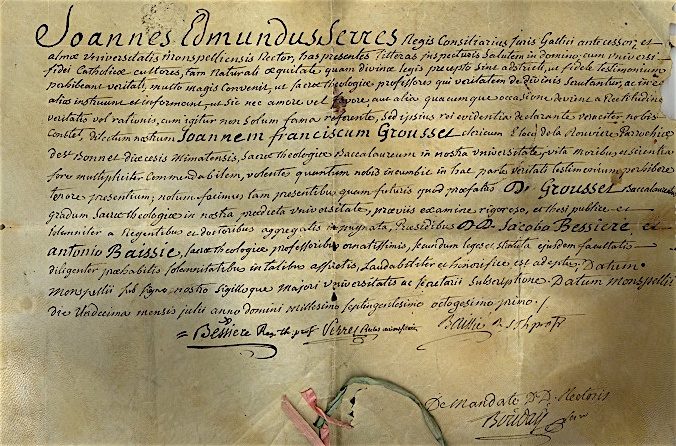 Joannes Edmundus Serres Regis Consiliarius Juris Gallici antecessor, et
almæ Universitatis Monspelliensis Rector, has præsentes litteras inspecturis Salutem in domino; cum universi
fidei Catholicæ cultores, tam Naturali æquitate quam divinæ legis precepto sint adstricti, ut fidele testimonium
perhibeant veritati, multo magis convenit, ut Sacræ theologiæ professores qui veritatem de divinis Scrutantur, ac in ea
alios instruunt et informent, ut sic nec amore vel favore, aut alia quacumque occasione devient a Rectitudine
veritatis vel rationis, cum igitur non solum fama referente, sed ipsius rei evidentia declarante veraciter nobis
Constet, dilectum nostrum Joannem franciscum Grousset clericum E loco de la Rouviere Parrochiæ
de St Bonnet diœcesis Mimatensis, Sacræ theologiæ Baccalaureum in nostra universitate, vita moribus et scientia
fore multipliciter Commendabilem, volentes quantum nobis incumbit in hac parte veritati testimonium perhibere
tenore præsentium; notum facimus tam præsentibus quam futuris quod præfatus D. Grousset Baccalaureatus
gradum Sacræ theologiæ in nostra prædicta universitate, prævis examine rigoroso, et thesi publice et
solemniter a Regentibus et doctoribus aggregatis impugnata, Præsidibus D.D. Jacobo Bessiere et
antonio Baissie, sacræ theologiæ professoribus ornatissimis, secundum leges et statuta ejusdem facultatis
diligenter præhabitis solemnitatibus in talibus assuetis, Laudabiliter et honorifice est adeptus. Datum
Monspellii sub signo nostro sigilloque majori universitatis ac secretarii Subscriptione. Datum monspellii
die Undecima mensis julii anno domini millesimo septingentesimo octogesimo primo.
Bessiere Serres Baissie
De Mandato D. D. Rectoris